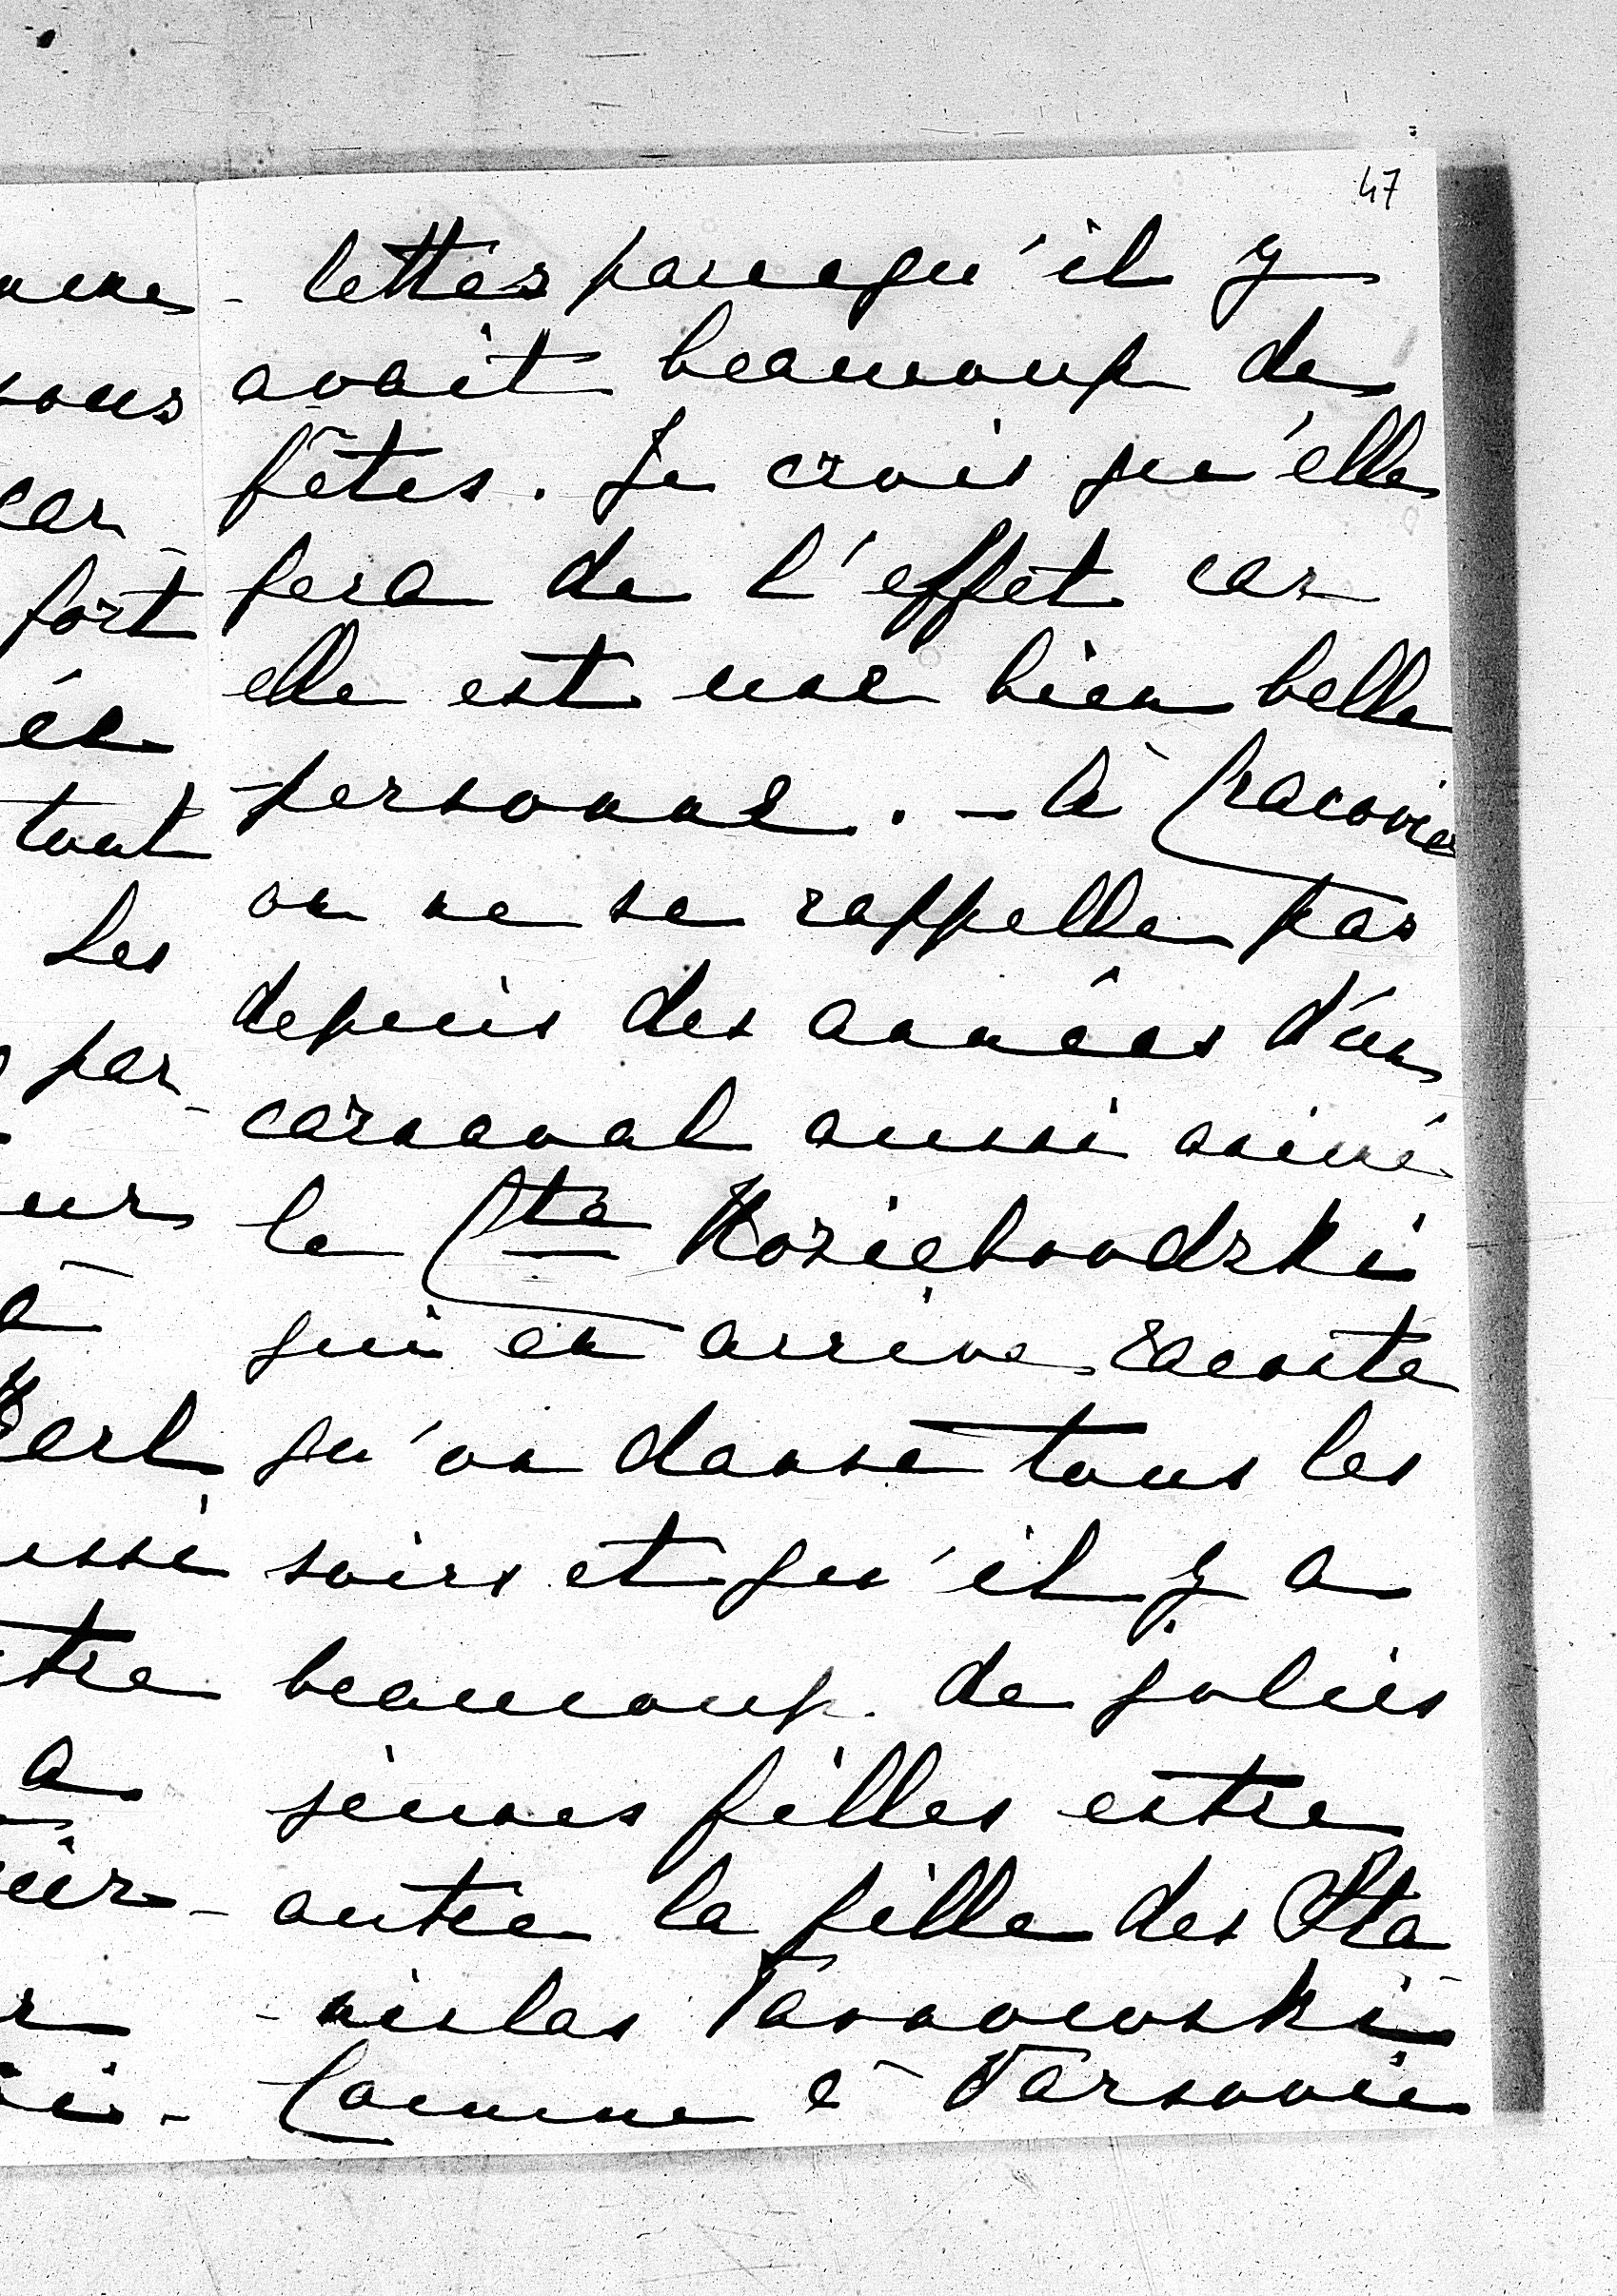 47
lettes parcequ'il y
avait beaucoup de
fêtes. Je crois qu'elle
fera de l'effet car
elle est une bien belle
personne. - à Cracovie
on ne se rappelle pas
depuis des années d'un
carnaval aussi animé
le Cte
qui en arrive raconte
qu'on danse tous les
soirs et qu'il y a
beaucoup de jolies
jeunes filles entre
autre la fille des Sta
- nislas Tarnowski
Comme à Varsovie
fort
tout
Les
par-